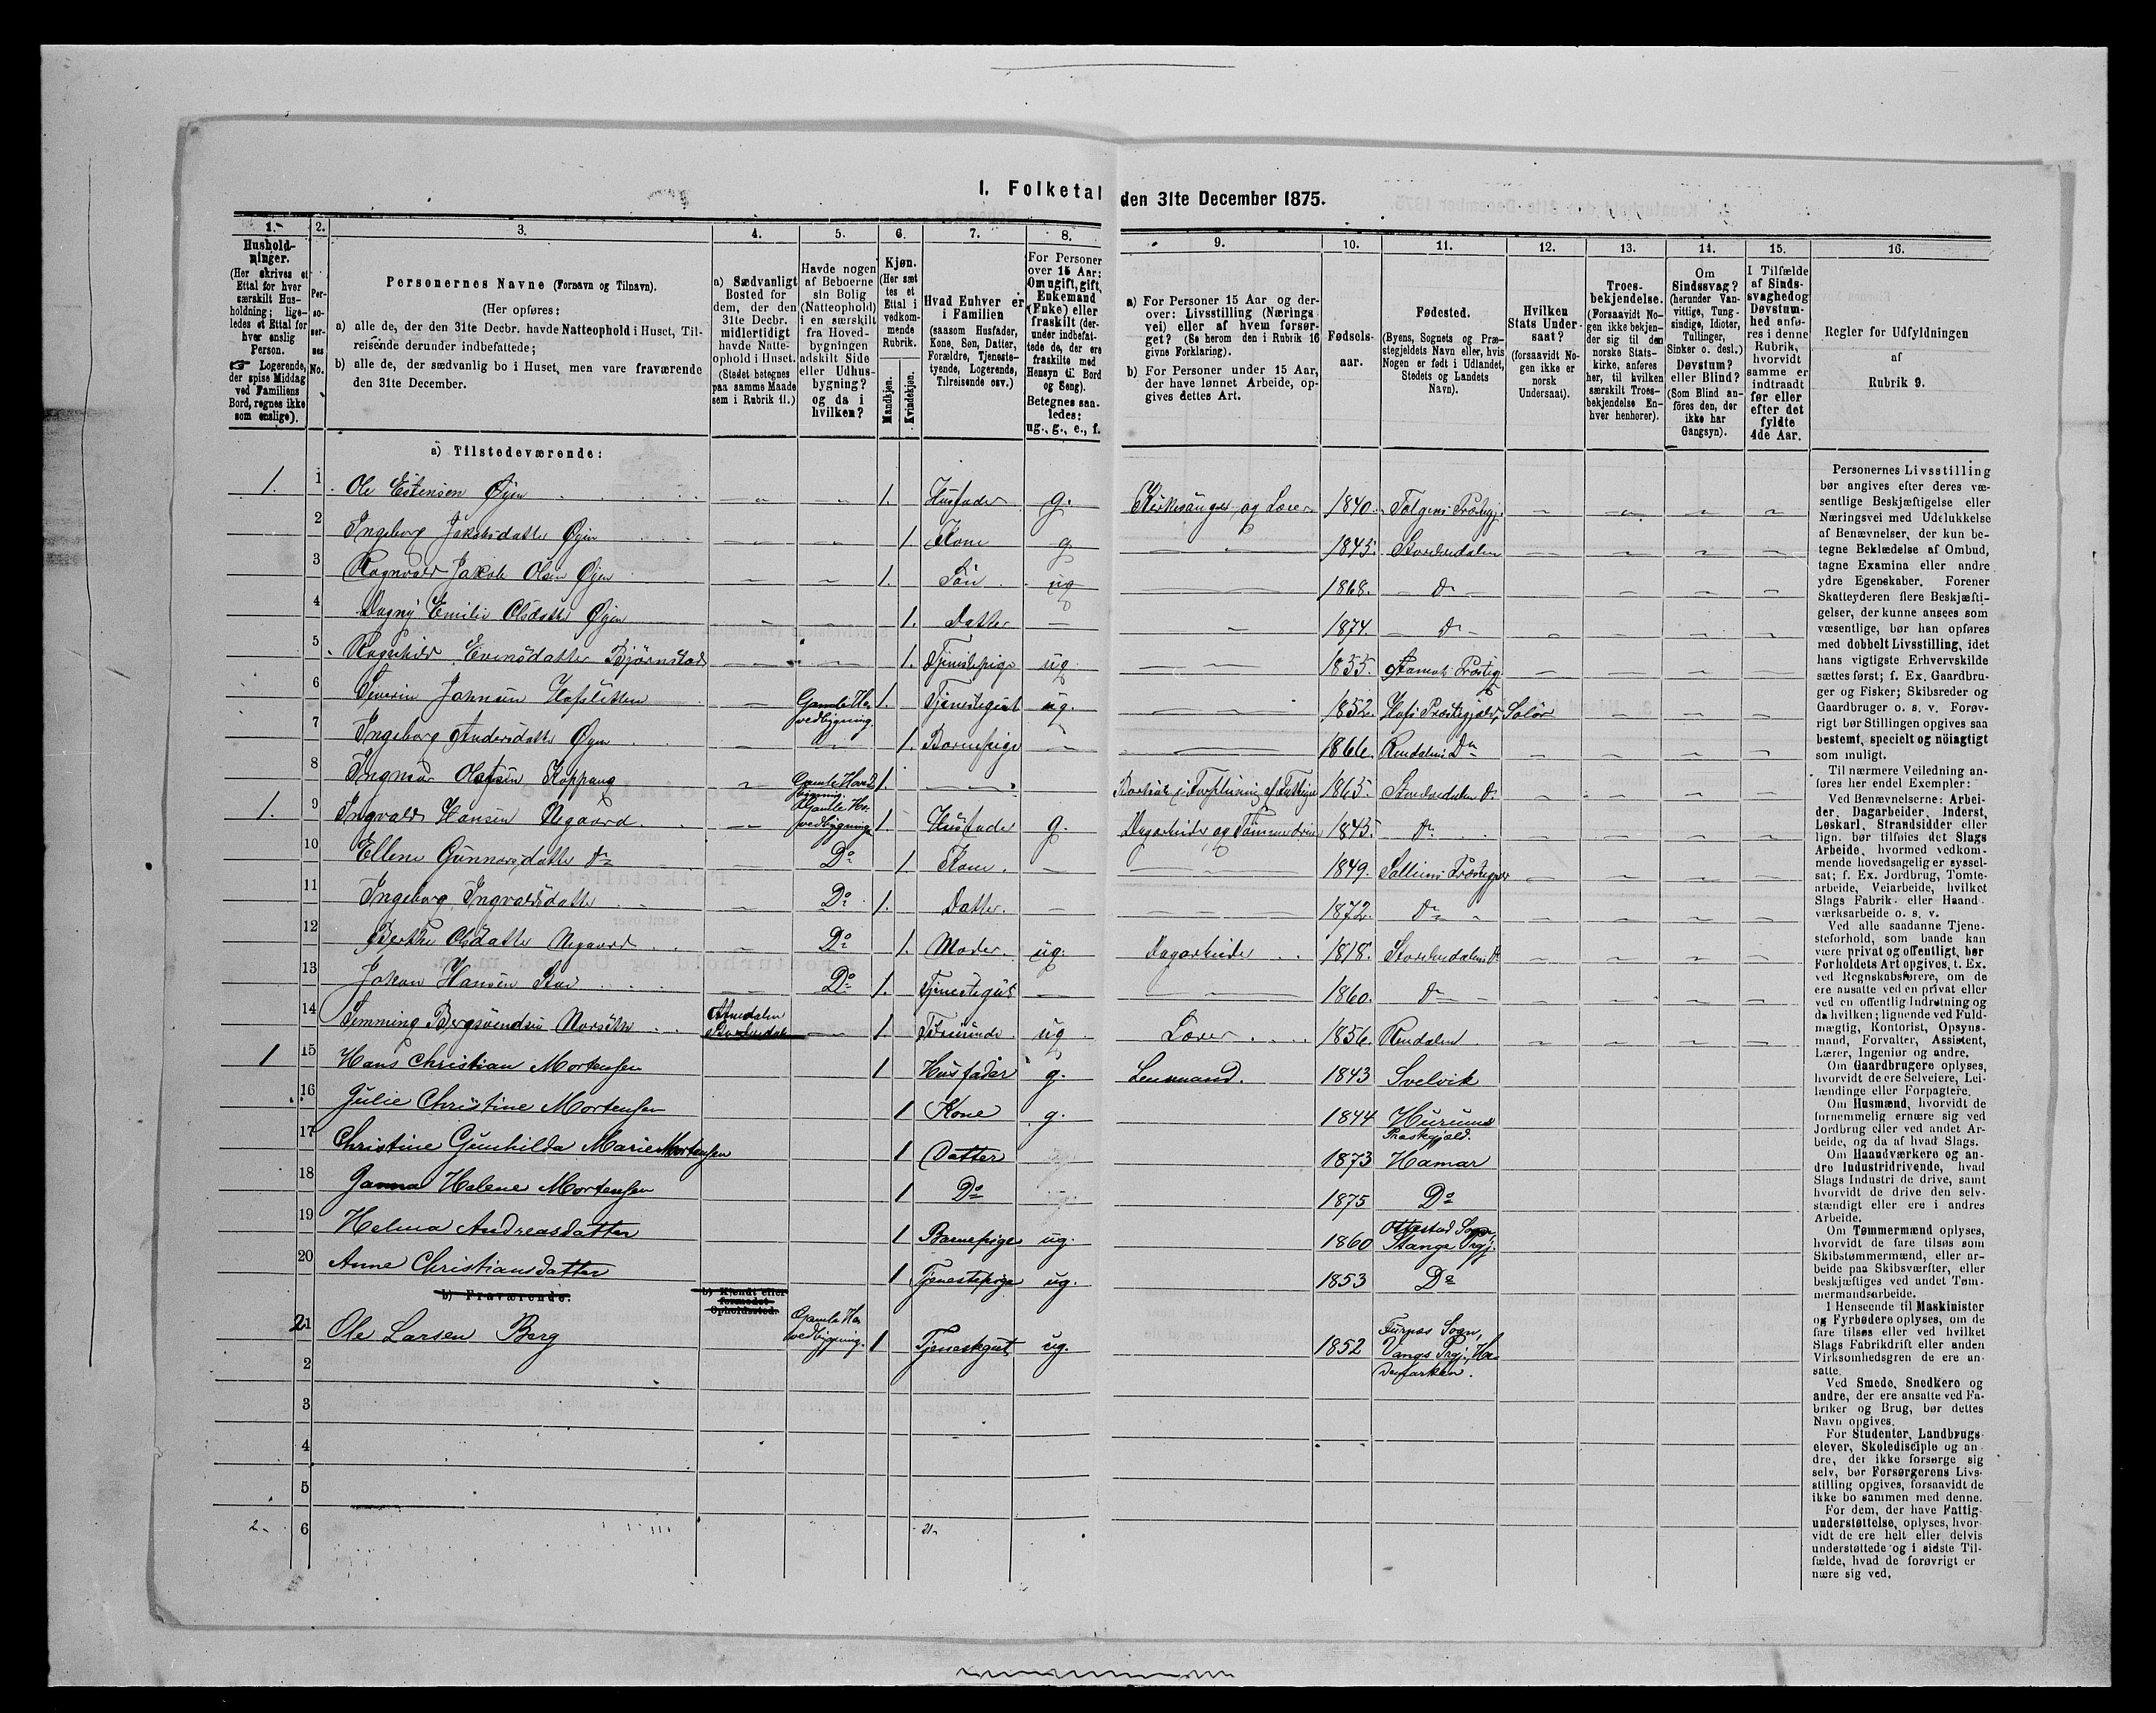 I. Folketal den 31te December 1875.
1. 2. 3. 4. 5. 6. 7. 8. 9. 10. 11. 12. 13. 14. 15. 16.
Hushold-
ninger.
(Her skrives et
Ettal for hver
særskilt Hus-
holdning; lige-
ledes et Ettal for
hver enslig
Person.
☞ Logerende,
der spise Middag
ved Familiens
Bord, regnes ikke
som enslige).
Per-
so-
ner-
nes
No.
Personernes Navne (Fornavn og Tilnavn).
(Her opføres:
a) alle de, der den 31te Decbr. havde Natteophold i Huset, Til-
reisende derunder indbefattede;
b) alle de, der sædvanlig bo i Huset, men vare fraværende
den 31te December.
a) Sædvanligt
Bosted for
dem, der den
31te Decbr.
midlertidigt
havde Natte-
ophold i Huset.
(Stedet betegnes
paa samme Maade
som i Rubrik 11.)
Havde nogen
af Beboerne
sin Bolig
(Natteophold)
i en særskilt
fra Hoved-
bygningen
adskilt Side
eller Udhus-
bygning?
og da i
hvilken?
Kjøn.
(Her sæt
tes et
Ettal i
vedkom-
mende
Rubrik.
Mandkjøn.
Kvindekjøn.
Hvad Enhver er
i Familien
(saasom Husfader,
Kone, Søn, Datter,
Forældre, Tjeneste-
tyende, Logerende,
Tilreisende osv.)
For Personer
over 15 Aar:
Om ugift, gift,
Enkemand
(Enke) eller
fraskilt (der-
under indbefat-
tede de, der ere
fraskilte med
Hensyn til Bord
og Seng).
Betegnes saa-
ledes:
ug., g., e., f.
a) For Personer 15 Aar og der-
over: Livsstilling (Nærings
vei) eller af hvem forsør-
get? (Se herom den i Rubrik 16
givne Forklaring).
b) For Personer under 15 Aar,
der have lønnet Arbeide, op-
gives dettes Art.
Fødsels-
aar.
Fødested.
(Byens, Sognets og Præ-
stegjeldets Navn eller, hvis
Nogen er født i Udlandet,
Stedets og Landets
Navn).
Hvilken
Stats Under-
saat?
(forsaavidt No-
gen ikke er
norsk
Undersaat).
Troes-
bekjendelse.
(Forsaavidt No-
gen ikke bekjen-
der sig til den
norske Stats-
kirke, anføres
her, til hvilken
særskilt Troes-
bekjendelse En-
hver henhører).
Om
Sindssvag?
(herunder Van-
vittige, Tung-
sindige, Idioter,
Tullinger,
Sinker o. desl.)
Døvstum?
eller Blind?
(Som Blind an-
føres den, der
ikke har
Gangsyn).
I Tilfælde
af Sinds-
svaghed og
Døvstum-
hed anfø-
res i denne
Rubrik,
hvorvidt
samme er
indtraadt
før eller
efter det
fyldte
4de Aar.
Regler for Udfyldningen
af
Rubrik 9.
a) Tilstedeværende:
1. 1 Ole Estensen Øyen 1. Husfader g. Kirkesanger og Lærer 1840. Tolgens Præstgj.
2 Ingeborg Jakobsdatter Øyen 1. Kone g 1845. Storelvedalen
3 Ragnvald Jakob Olsen Øyen 1. Søn ug 1868. Do
4 Dagny Emilie Olsdatter Øyen 1. Datter 1874. Do
5 Ragnhild Evensdatter Bjørnstad 1. Tjenestepige ug 1855.
6 Severin Johnsen Hofslitten Gamle Ho-
vedbygning. 1. Tjenestegut ug. 1852. Hofs Præstegjeld, Solør
7 Ingeborg Andersdatter Øyen 1. Barnepige 1866. Rendalens Do
8 Ingmar Olsen Koppang Gamle Hoved-
bygning. 1. 1865. Storelvedalen Do
1. 9 Ingvald Hansen Negaard Gamle Ho-
vedbygning 1. Husfader g. Dagarbeider og Tømmerdriver 1845. Do
10 Ellene Gunnersdatter Do Do 1. Kone. 1849. Præstegjeld
11 Ingeborg Ingvaldsdatter Do 1. Datter. 1872. Do
12 Berthe Olsdatter Negaard Do 1. Moder. ug. Dagarbeide 1818. Storelvedalens Do
13 Johan Hansen Do 1. Tjenestegut 1860. Do
14 Semming Bergsvendsen Atnedalen
Storelvedalen 1. ug Lærer 1856. Rendalen
1 15 Hans Christian Mortensen 1 Husfader g. Lensmand. 1843 Svelvik
16 Julie Christine Mortensen 1 Kone g. 1844 Hurums
Præstegjæld.
17 Christine Gunhilda Marie Mortensen 1 Datter 1873 Hamar
18 Ganna Helene Mortensen 1 Do 1875 Do
19 Helma Andreasdatter 1 Barnepige ug. 1860 Ottestad Sogn,
Stange Prgj.
20 Anne Christiansdatter 1 Tjenestepige ug. 1853 Do
b) Fraværende.
b) Kjendt eller
formodet
Opholdssted.
21 Ole Larsen Berg Gamle Ho-
vedbygning. 1 Tjenestegut ug. 1852 Furnæs Sogn,
Vangs Prgj., He-
demarken.
2
3
4
5
6
2 21
Personernes Livsstilling
bør angives efter deres væ-
sentlige Beskjæftigelse eller
Næringsvei med Udelukkelse
af Benævnelser, der kun be-
tegne Beklædelse af Ombud,
tagne Examina eller andre
ydre Egenskaber. Forener
Skatteyderen flere Beskjæfti-
gelser, der kunne ansees som
væsentlige, bør han opføres
med dobbelt Livsstilling, idet
hans vigtigste Erhvervskilde
sættes først; f. Ex. Gaardbru-
ger og Fisker; Skibsreder og
Gaardbruger o. s. v. Forøv-
rigt bør Stillingen opgives saa
bestemt, specielt og nöiagtigt
som muligt.
Til nærmere Veiledning an-
føres her endel Exempler:
Ved Benævnelserne: Arbei-
der, Dagarbeider, Inderst,
Løskarl, Strandsidder eller
lign. bør tilføies det Slags
Arbeide, hvormed vedkom-
mende hovedsagelig er syssel-
sat; f. Ex. Jordbrug, Tomte-
arbeide, Veiarbeide, hvilket
Slags Fabrik- eller Haand-
værksarbeide o. s. v.
Ved alle saadanne Tjene-
steforhold, som baade kan
være privat og offentligt, bør
Forholdets Art opgives, t. Ex.
ved Regnskabsførere, om de
ere ansatte ved en privat eller
ved en offentlig Indretning og
da hvilken; lignende ved Fuld-
mægtig, Kontorist, Opsyns-
mand, Forvalter, Assistent,
Lærer, Ingeniør og andre.
Om Gaardbrugere oplyses,
hvorvidt de ere Selveiere, Lei-
lændinge eller Forpagtere.
Om Husmænd, hvorvidt de
fornemmelig ernære sig ved
Jordbrug eller ved andet Ar-
beide, og da af hvad Slags.
Om Haandværkere og an-
dre Industridrivende, hvad
Slags Industri de drive, samt
hvorvidt de drive den selv-
stændigt eller ere i andres
Arbeide.
Om Tømmermænd oplyses,
hvorvidt de fare tilsøs som
Skibstømmermænd, eller ar-
beide paa Skibsværfter, eller
beskjæftiges ved andet Tøm-
mermandsarbeide.
I Henseende til Maskinister
og Fyrbødere oplyses, om de
fare tilsøs eller ved hvilket
Slags Fabrikdrift eller anden
Virksomhedsgren de ere an-
satte.
Ved Smede, Snedkere og
andre, der ere ansatte ved Fa-
briker og Brug, bør dettes
Navn opgives.
For Studenter, Landbrugs-
elever, Skoledisciple og an-
dre, der ikke forsørge sig
selv, bør Forsørgerens Livs-
stilling opgives, forsaavidt de
ikke bo sammen med denne.
For dem, der have Fattig-
understøttelse, oplyses, hvor-
vidt de ere helt eller delvis
understøttede og i sidste Til-
fælde, hvad de forøvrigt er
nære sig ved.